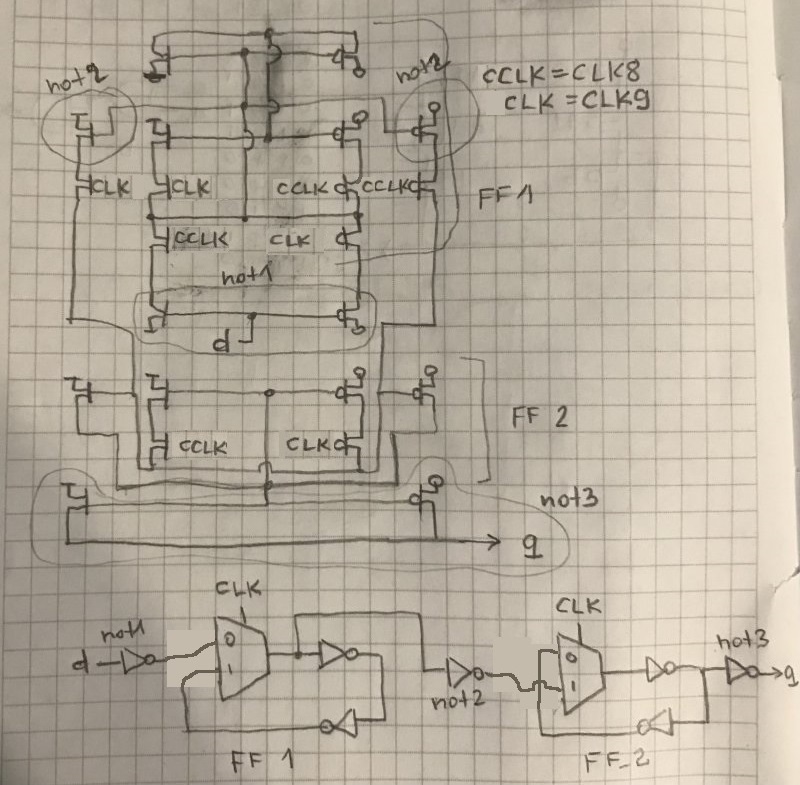 not2
not2
CCLK=CLK8
CLK=CLK9
CLK
CLK
CCLK
CCLK
FF1
CCLK
CLK
not1
d
FF 2
CCLK
CLK
not3
q
CLK
CLK
d
not1
0
1
not2
0
1
not3
q
FF 1
FF_2